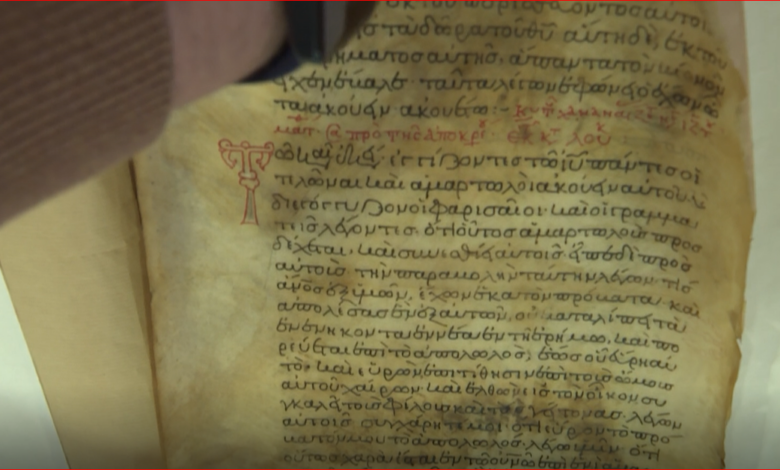 ς τὰ δῶρα τοῦ θυ αὕτη δὲ, ἐκ τοῦ
ρήματος αὐτῆς, ἅπαντα τὸν
εἶχεν ἔβαλε. ταῦτα λέγων ἐφώνει ὁ ἔχων
ἀκούειν ἀκουέτω
πρὸ τῆς ἀποκρε ἐκ κτ λου
Τῶ καιρῶ ἐκείνω, ἐγγίζοντες τῶ ιυ πάντες οἱ
τελῶναι καὶ ἁμαρτωλοὶ ἀκούειν αὐτοῦ. καὶ
διεγόγγυζον οἱ φαρισαῖοι καὶ οἱ γραμμα
τεῖς λέγοντες. ὅτι οὗτος ἁμαρτωλοὺς προσ
δέχεται. καὶ συνεσθίει αὐτοῖς. εἶπε δὲ πρὸς
αὐτοὺς τὴν παραβολὴν ταύτην λέγων. τίς
ἄνος ἐξ ὑμῶν, ἔχων ἑκατὸν πρόβατα. καὶ
ἀπολέσας ἓν ἐξ αὐτῶν, οὐ καταλείπει τὰ
ἐνενηκονταεννέα ἐν τῆ ἐρήμω, καὶ πο
ρεύεται ἐπὶ τὸ ἀπολωλός, ἕως οὗ εὕρη αὐ
τό. καὶ εὑρὼν ἐπιτίθησιν ἐπὶ τοὺς ὤμους
αὐτοῦ χαίρων καὶ ἐλθὼν εἰς τὸν οἶκον συ
γκαλεῖ τοὺς φίλους καὶ τοὺς γείτονας. λέγων
αὐτοῖς συγχάρητέ μοι ὅτι εὗρον τὸ πρό
βατόν μου τὸ ἀπολωλός. λέγω ὑμῖν ὅτι
οὕτως χαρὰ ἔσται ἐν τῶ οὐνῶ ἐπὶ